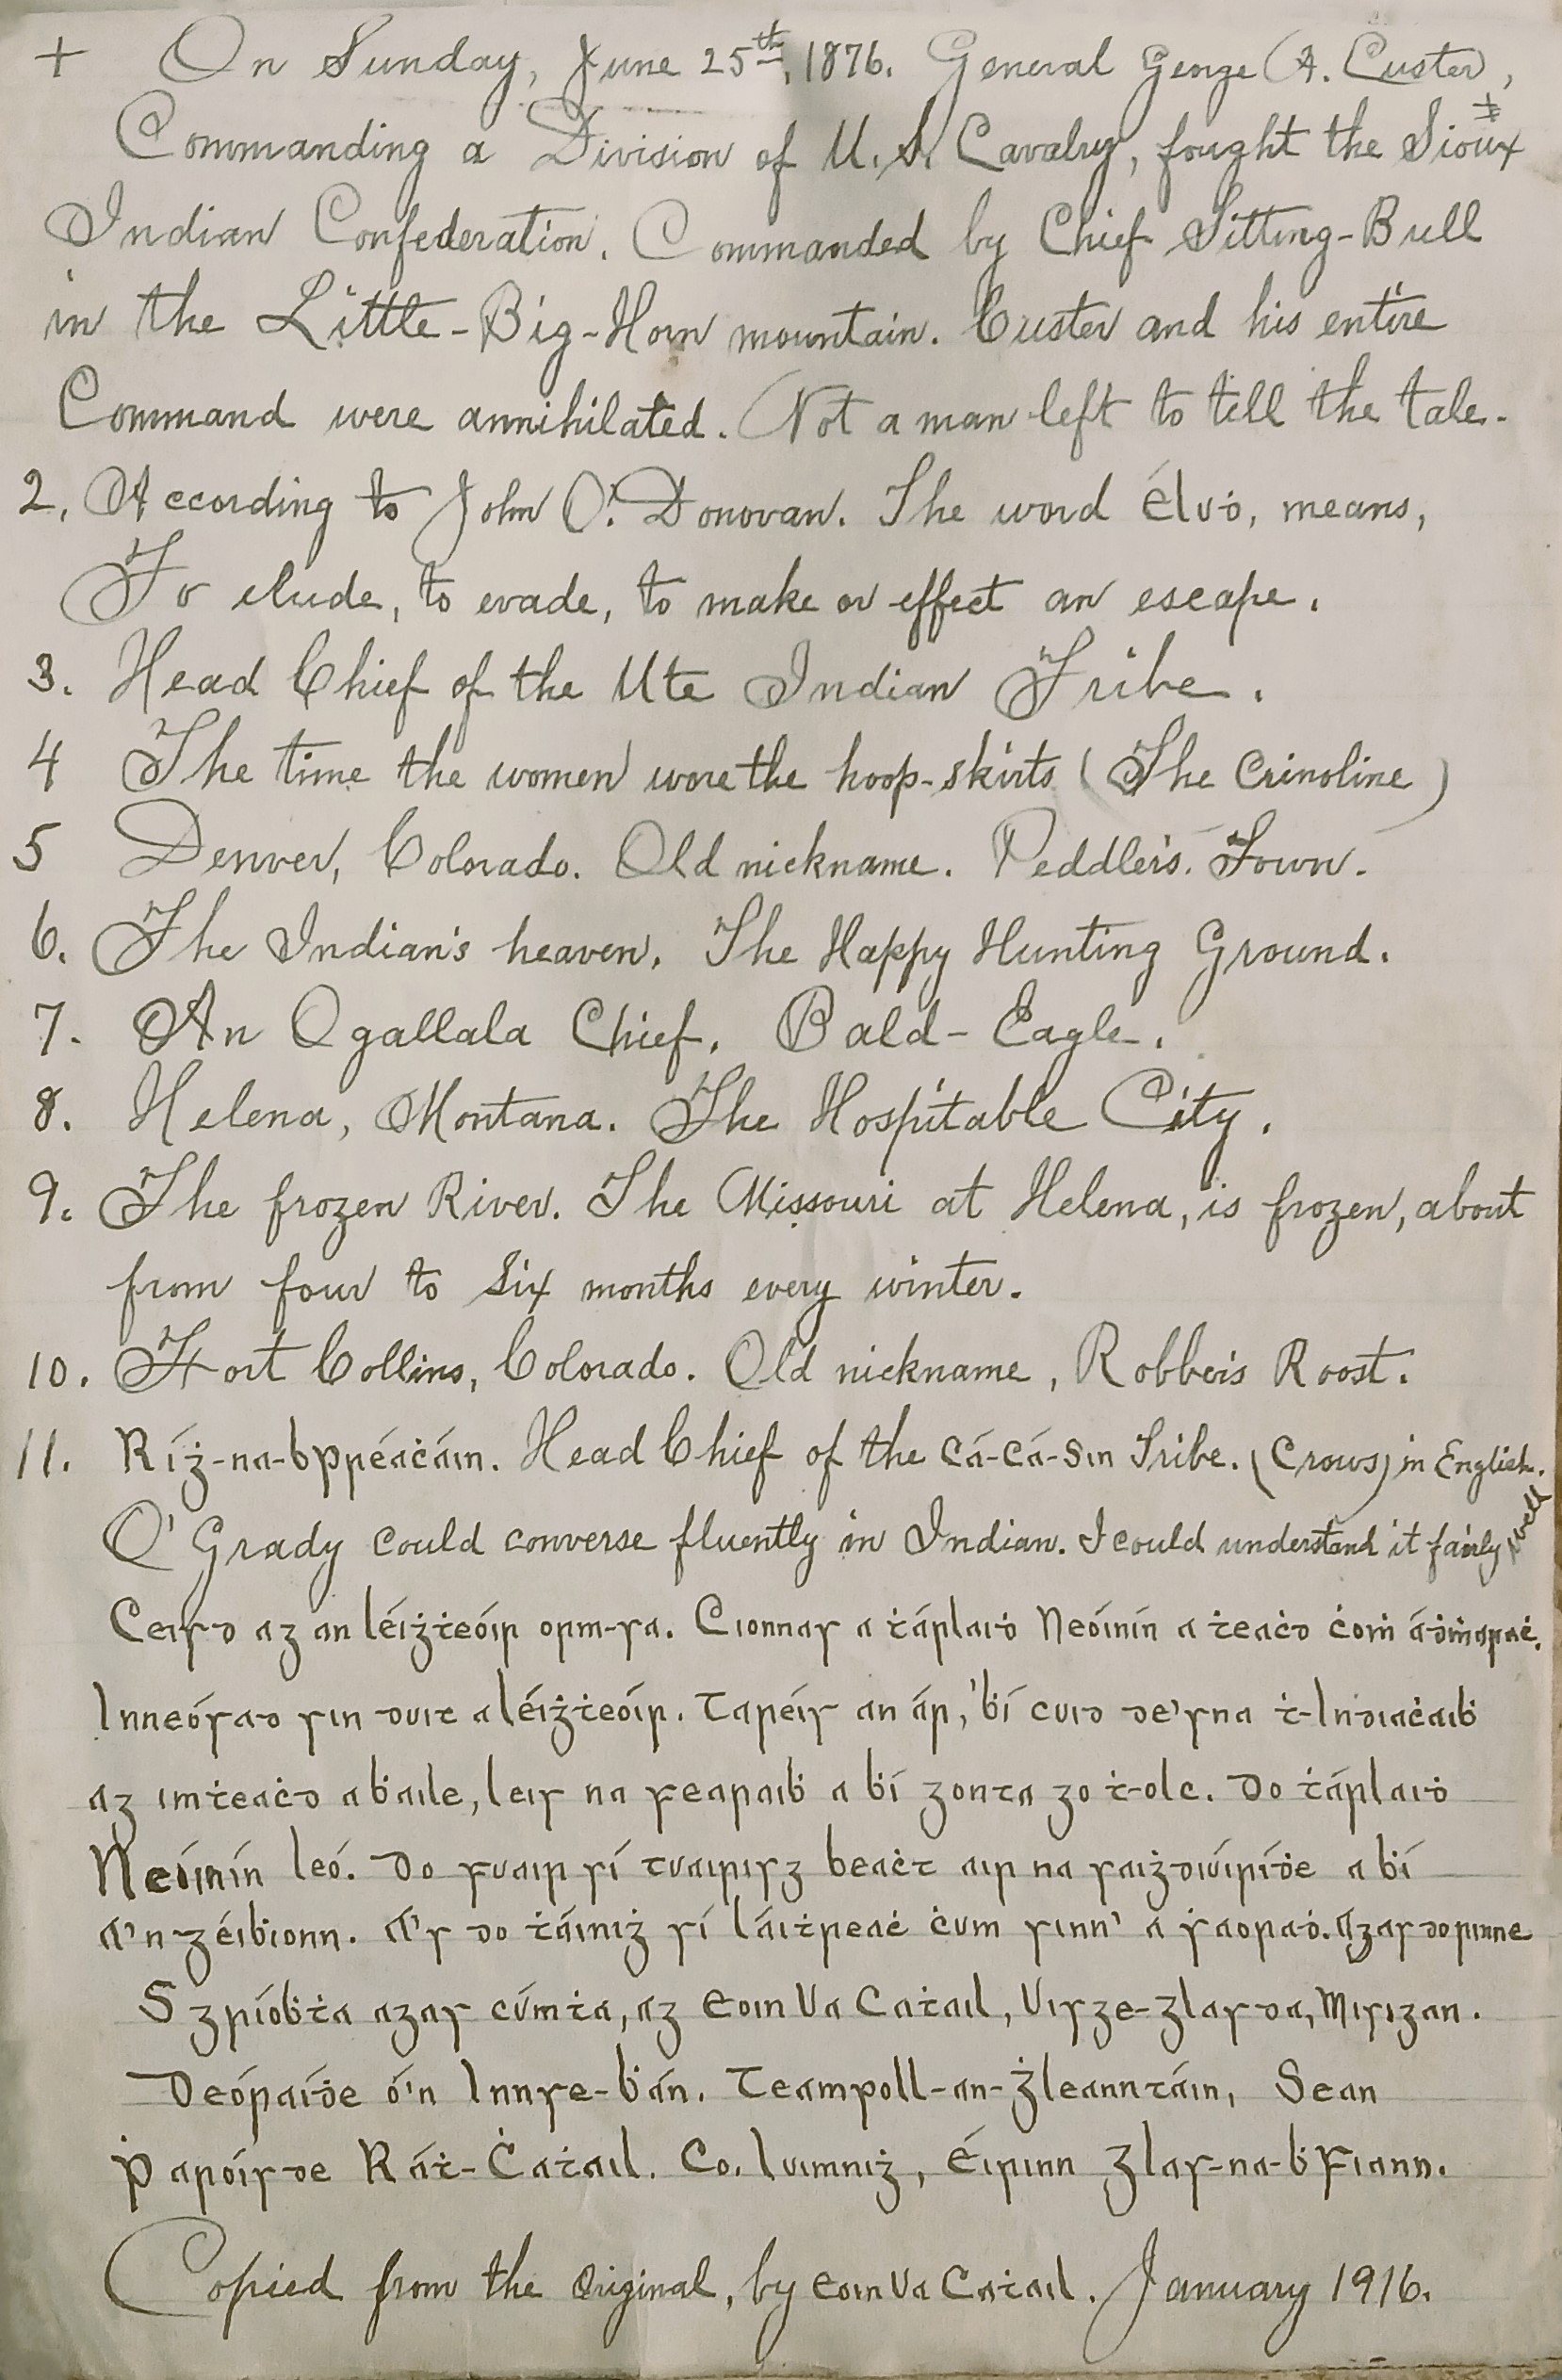 + On Sunday, June 25th, 1876. General George A. Custer,
Commanding a Division of U.S. Cavalry, fought the Sioux ‡
Indian Confederation. Commanded by Chief Sitting-Bull
in the Little-Big-Horn mountain. Custer and his entire
Command were annihilated. Not a man left to tell the tale.
2. According to John O'Donovan. The word élvḋ, means,
To elude, to evade, to make or effect an escape.
3. Head Chief of the Ute Indian Tribe.
4 The time the women wore the hoop-skirts (The Crinoline)
5 Denver, Colorado. Old nickname. Peddler's Town.
6. The Indian's heaven. The Happy Hunting Ground.
7. An Ogallala Chief. Bald-Eagle.
8. Helena, Montana. The Hospitable City.
9. The frozen River. The Missouri at Helena, is frozen, about
from four to six months every winter.
10. Fort Collins, Colorado. Old nickname, Robber's Roost.
11. Ríġ-na-bPréaċáin. Head Chief of the Cá-Cá-Sin Tribe. (Crows) in English.
O'Grady could converse fluently in Indian. I could understand it fairly well
Ceisd ag an léiġṫeóir orm-sa. Cionnas a ṫárlaiḋ Neóinín a ṫeaċd ċoṁ áḋṁaraċ.
Inneósad sin duit a léiġṫeóir. Taréis an áir, 'bí cuid de'sna ṫ-Indiaċaiḃ
ag imṫeaċd a ḃaile, leis na fearaiḃ a ḃí gonta go ṫ-olc. Do ṫárlaiḋ
Neóinín leó. Do fuair sí tuairisg beaċt air na saiġdiúiríḋe a ḃí
a'n géiḃionn. A's do ṫáiniġ sí láiṫreaċ ċum sinn' a ṡaoraḋ. Agas do rinne
Sgríoḃṫa agas cúmṫa, ag Eoin Ua Caṫail, Uisge-glasda, Misigan.
Deóraíḋe ó'n Innse-ḃán. Teampoll-an-ġleanntáin, Sean
Ṗaróisde Ráṫ-Ċaṫail. Co. Luimniġ, Éirinn glas-na-ḃFiann.
Copied from the Original, by Eoin Ua Caṫail. January 1916.